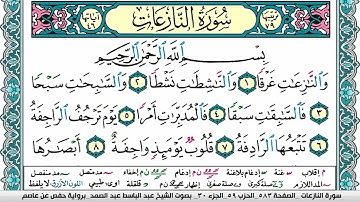 سُورَةُ النَّازِعَاتِ
بِسْمِ ٱللَّهِ ٱلرَّحْمَٰنِ ٱلرَّحِيمِ
وَٱلنَّٰزِعَٰتِ غَرْقًا ١ وَٱلنَّٰشِطَٰتِ نَشْطًا ٢ وَٱلسَّٰبِحَٰتِ سَبْحًا
٣ فَٱلسَّٰبِقَٰتِ سَبْقًا ٤ فَٱلْمُدَبِّرَٰتِ أَمْرًا ٥ يَوْمَ تَرْجُفُ ٱلرَّاجِفَةُ
٦ تَتْبَعُهَا ٱلرَّادِفَةُ ٧ قُلُوبٌ يَوْمَئِذٍ وَاجِفَةٌ ٨ أَبْصَٰرُهَا
سورة النازعات . الصفحة ٥٨٣ . الحزب ٥٩ . الجزء ٣٠ . بصوت الشيخ عبد الباسط عبد الصمد . برواية حفص عن عاصم